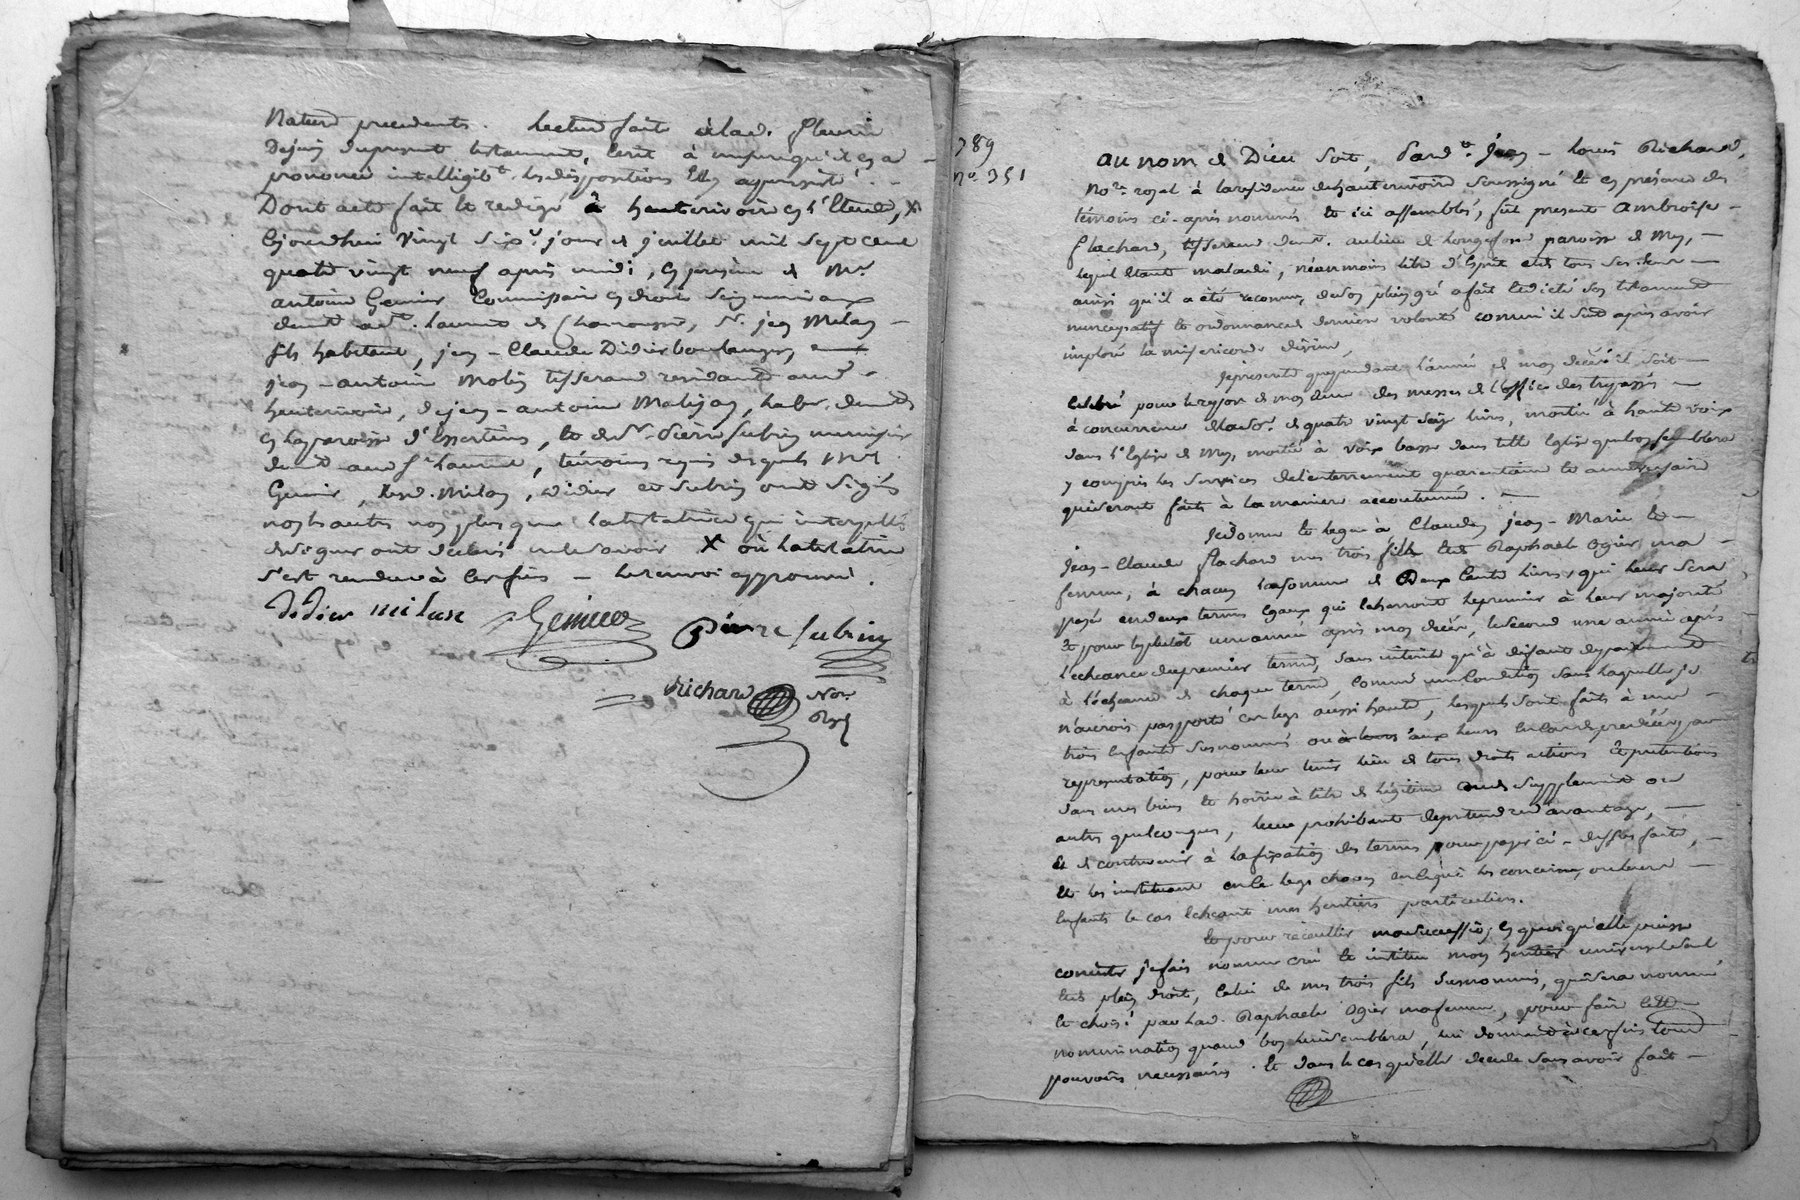 Nature precedents. Lecture fait à lad. fleurie
Dejoin du present testament, l'ecrit à mesure qu'il en a
prononcé intelligibt. les dispositions
Dont acte fait et redigé à hauterivoire en l'Etude, X
Cejourdhui vingt sixe. jour de juillet mil sept cent
quatre vingt neuf après midi, en presence de Mr.
antoine Genier Commissaire en droits seigneuriaux
demt. a St. Laurent de Chamousset, Sr. jean Milan
fils habitant, jean-Claude Didier boulanger,
jean-antoine Molin tisserand residants aud.
hauterivoire, de jean-antoine habr. demt.
en la paroisse d'Essertins, et de Sr. Pierre Subrin menuisier
demt. aud. St. Laurent, témoins requis desquels Mrs.
Genier, lesd. Milan, Didier et Subrin ont signés
nos les autres non plus que la testatrice qui interpellés
de signer ont declaré ne le savoir X où la testatrice
s'est rendue à ces fins - le renvoi approuvé.
Didier milan Genier Pierre Subrin
Richard Nore.
Royl
789
no. 351
au nom de Dieu soit, pardt. Jean-Louis Richard,
Nore. royal à la residence de hauterivoire soussigné et en présence des
témoins ci-après nommés et ici assemblés, fût present ambroise
flachard, tisserand demt. au lieu de Longefond paroisse de Mey,
lequel étant malade, néanmoins libre d'Esprit et de tous ses sens
ainsi qu'il a été reconnu, de son plein gré a fait et dicté son testament
nuncupatif et ordonnance de derniere volonté comm'il suit après avoir
imploré la misericorde divine,
Je prescrits que pendant l'année de mon decès il soit
celebré pour le repos de mon ame des messes de l'office des trepassés
à concurrence de la so. de quatre vingt seize livres, moitié à haute voix
dans l'Eglise de Mey, moitié à voix basse dans telle Eglise que bon semblera
y compris les services de l'enterrement quarantaine et anniversaire
qui seront faits à la maniere accoutumé.
Je donne et legue à Claude, jean-Marie et
jean-Claude flachard mes trois fils et de Raphaele ogier ma
femme, à chacun la somme de Deux Cents livres, qui leur sera
payée en deux termes égaux qui echerront le premier à leur majorité
et pour le plutôt une année après mon decès, le second une année après
l'echeance du premier terme, sans interêt qu'à defaut de paiement
à l'échéance de chaque terme, comme une condition sans laquelle je
n'aurois pas porté ces legs aussi haut, lesquels sont faits à mes
trois enfants susnommés ou aux leurs en cas de predécès par
representation, pour leur tenir lieu de tous droits actions et pretentions
dans mes biens et hoirie à titre de légitime supplement ou
autres quelconques, leur prohibant de pretendre d'avantage,
Et de contrevenir à la fixation des termes pour payer ci-dessus fait,
Et les instituant en ce legs chacun en ce qui les concerne, ou leurs
enfants le cas échéant mes heritiers particuliers.
Et pour recueillir ma succession, en quoi qu'elle puisse
consister je fais nomme crée et institue mon heritier universel seul
et de plein droit, celui de mes trois fils susnommés, qui sera nommé
et choisi par lad. Raphaele ogier ma femme, pour faire cette
nomination quand bon lui semblera, lui donnant à ces fins tous
pouvoirs necessaires. Et dans le cas qu'elle decede sans avoir fait